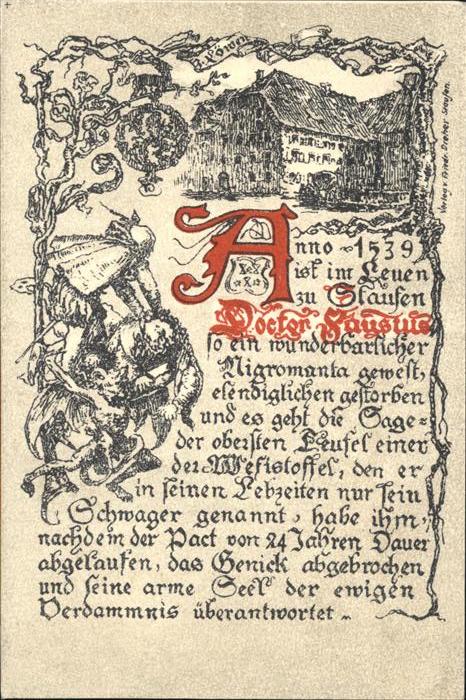 z. Löwen
Verlag v. Friedr. Dreher Staufen.
Anno 1539
ist im Leuen
zu Staufen
Doctor Faustus
so ein wunderbarlicher
Nigromanta gewest,
elendiglichen gestorben
und es geht die Sage:
der obersten Teufel einer
der Mefistoffel, den er
in seinen Lebzeiten nur sein
Schwager genannt, habe ihm,
nachdem der Pact von 24 Jahren Dauer
abgelaufen, das Genick abgebrochen
und seine arme Seel der ewigen
Verdammnis überantwortet